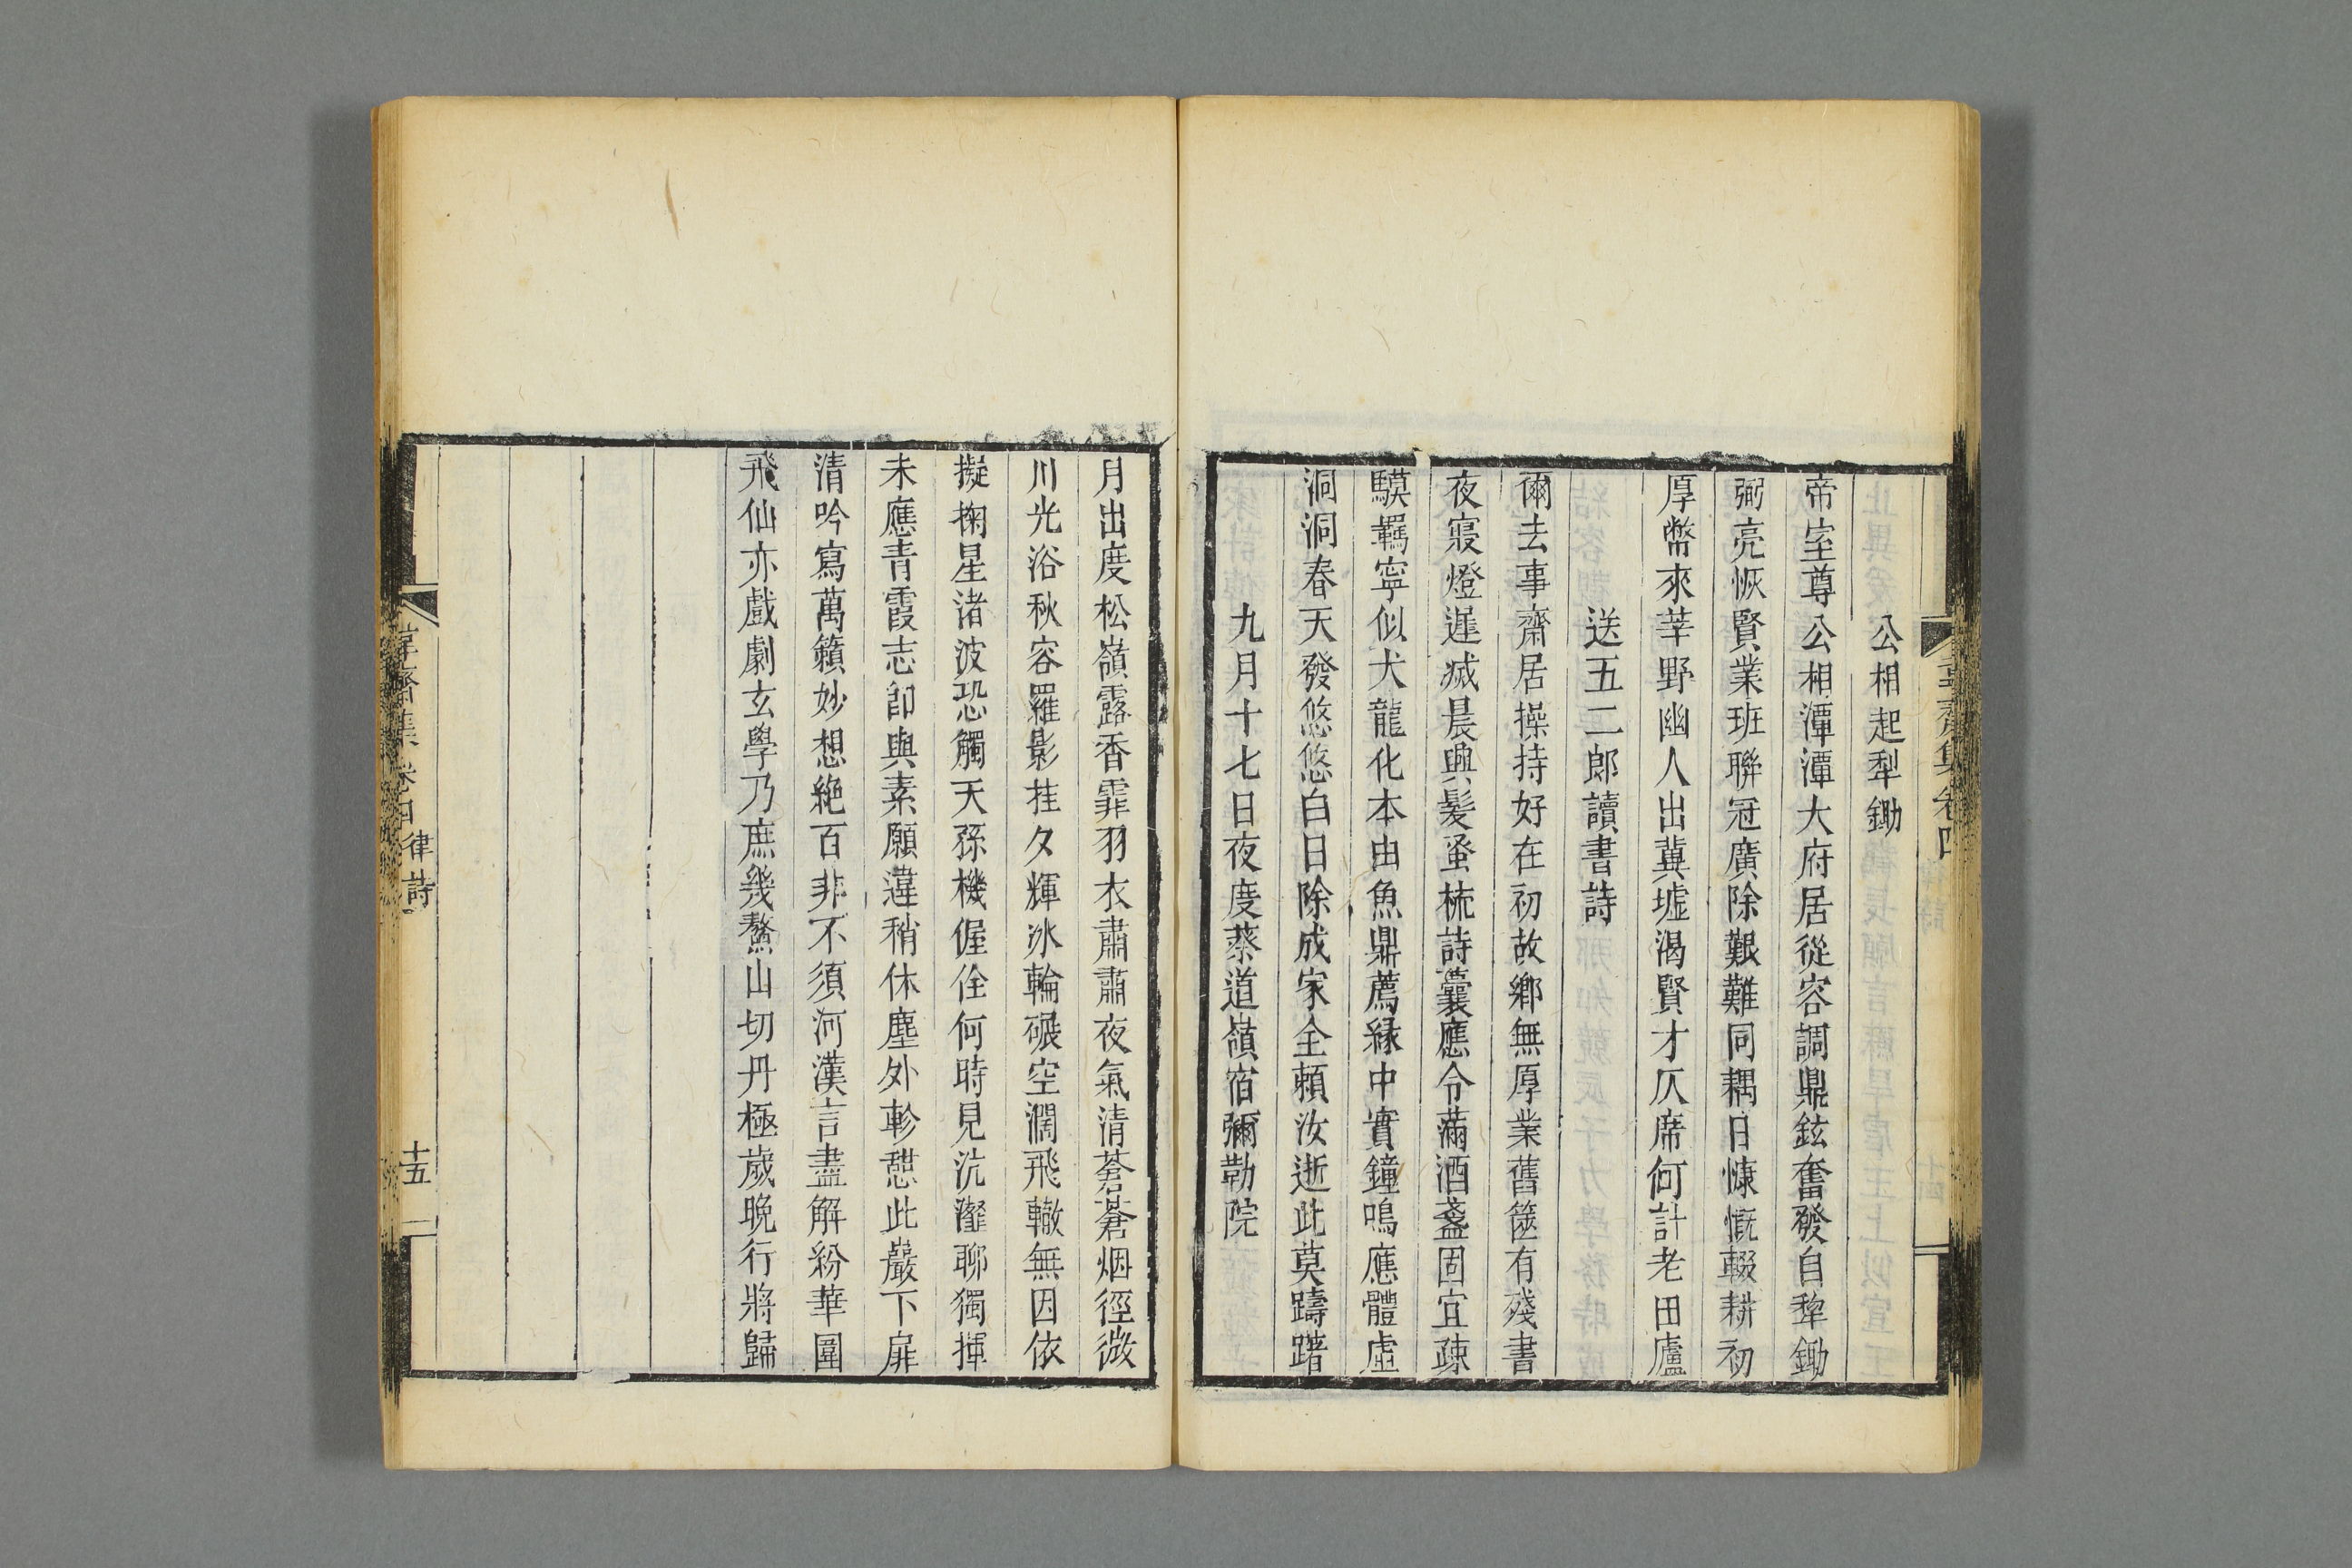 公相起犁鋤
帝室尊公相潭潭大府居從容調鼎鉉奮發自犂鋤
弼亮恢賢業班聯冠廣除艱難同耦日慷慨輟耕初
厚幣來莘野幽人出冀墟渴賢才仄席何計老田廬
送五二郎讀書詩
爾去事齋居操持好在初故鄉無厚業舊篋有殘書
夜寢燈遲滅晨興髮蚤梳詩囊應令滿酒盞固宜疎
䮬羈寧似犬龍化本由魚鼎薦緣中實鐘鳴應體虛
洞洞春天發悠悠白日除成家全賴汝逝此莫躊躇
九月十七日夜度蔡道嶺宿彌勒院
月出度松嶺露香霏羽衣肅肅夜氣清蒼蒼烟徑微
川光浴秋容羅影挂夕輝冰輪碾空濶飛轍無因依
擬掬星渚波恐觸天孫機偓佺何時見沆瀣聊獨揮
未應青霞志卽與素願違稍休塵外軫憩此巖下扉
清吟寫萬籟妙想絶百非不須河漢言盡解紛華圍
飛仙亦戲劇玄學乃庶幾鰲山切丹極歲晚行將歸
齋集卷四 律詩 十五